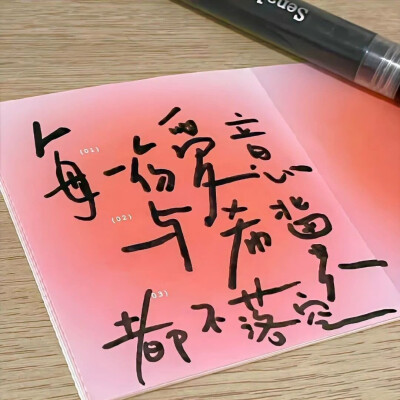 (01)
每一份爱意
(02)
与希望
(03)
都不落空